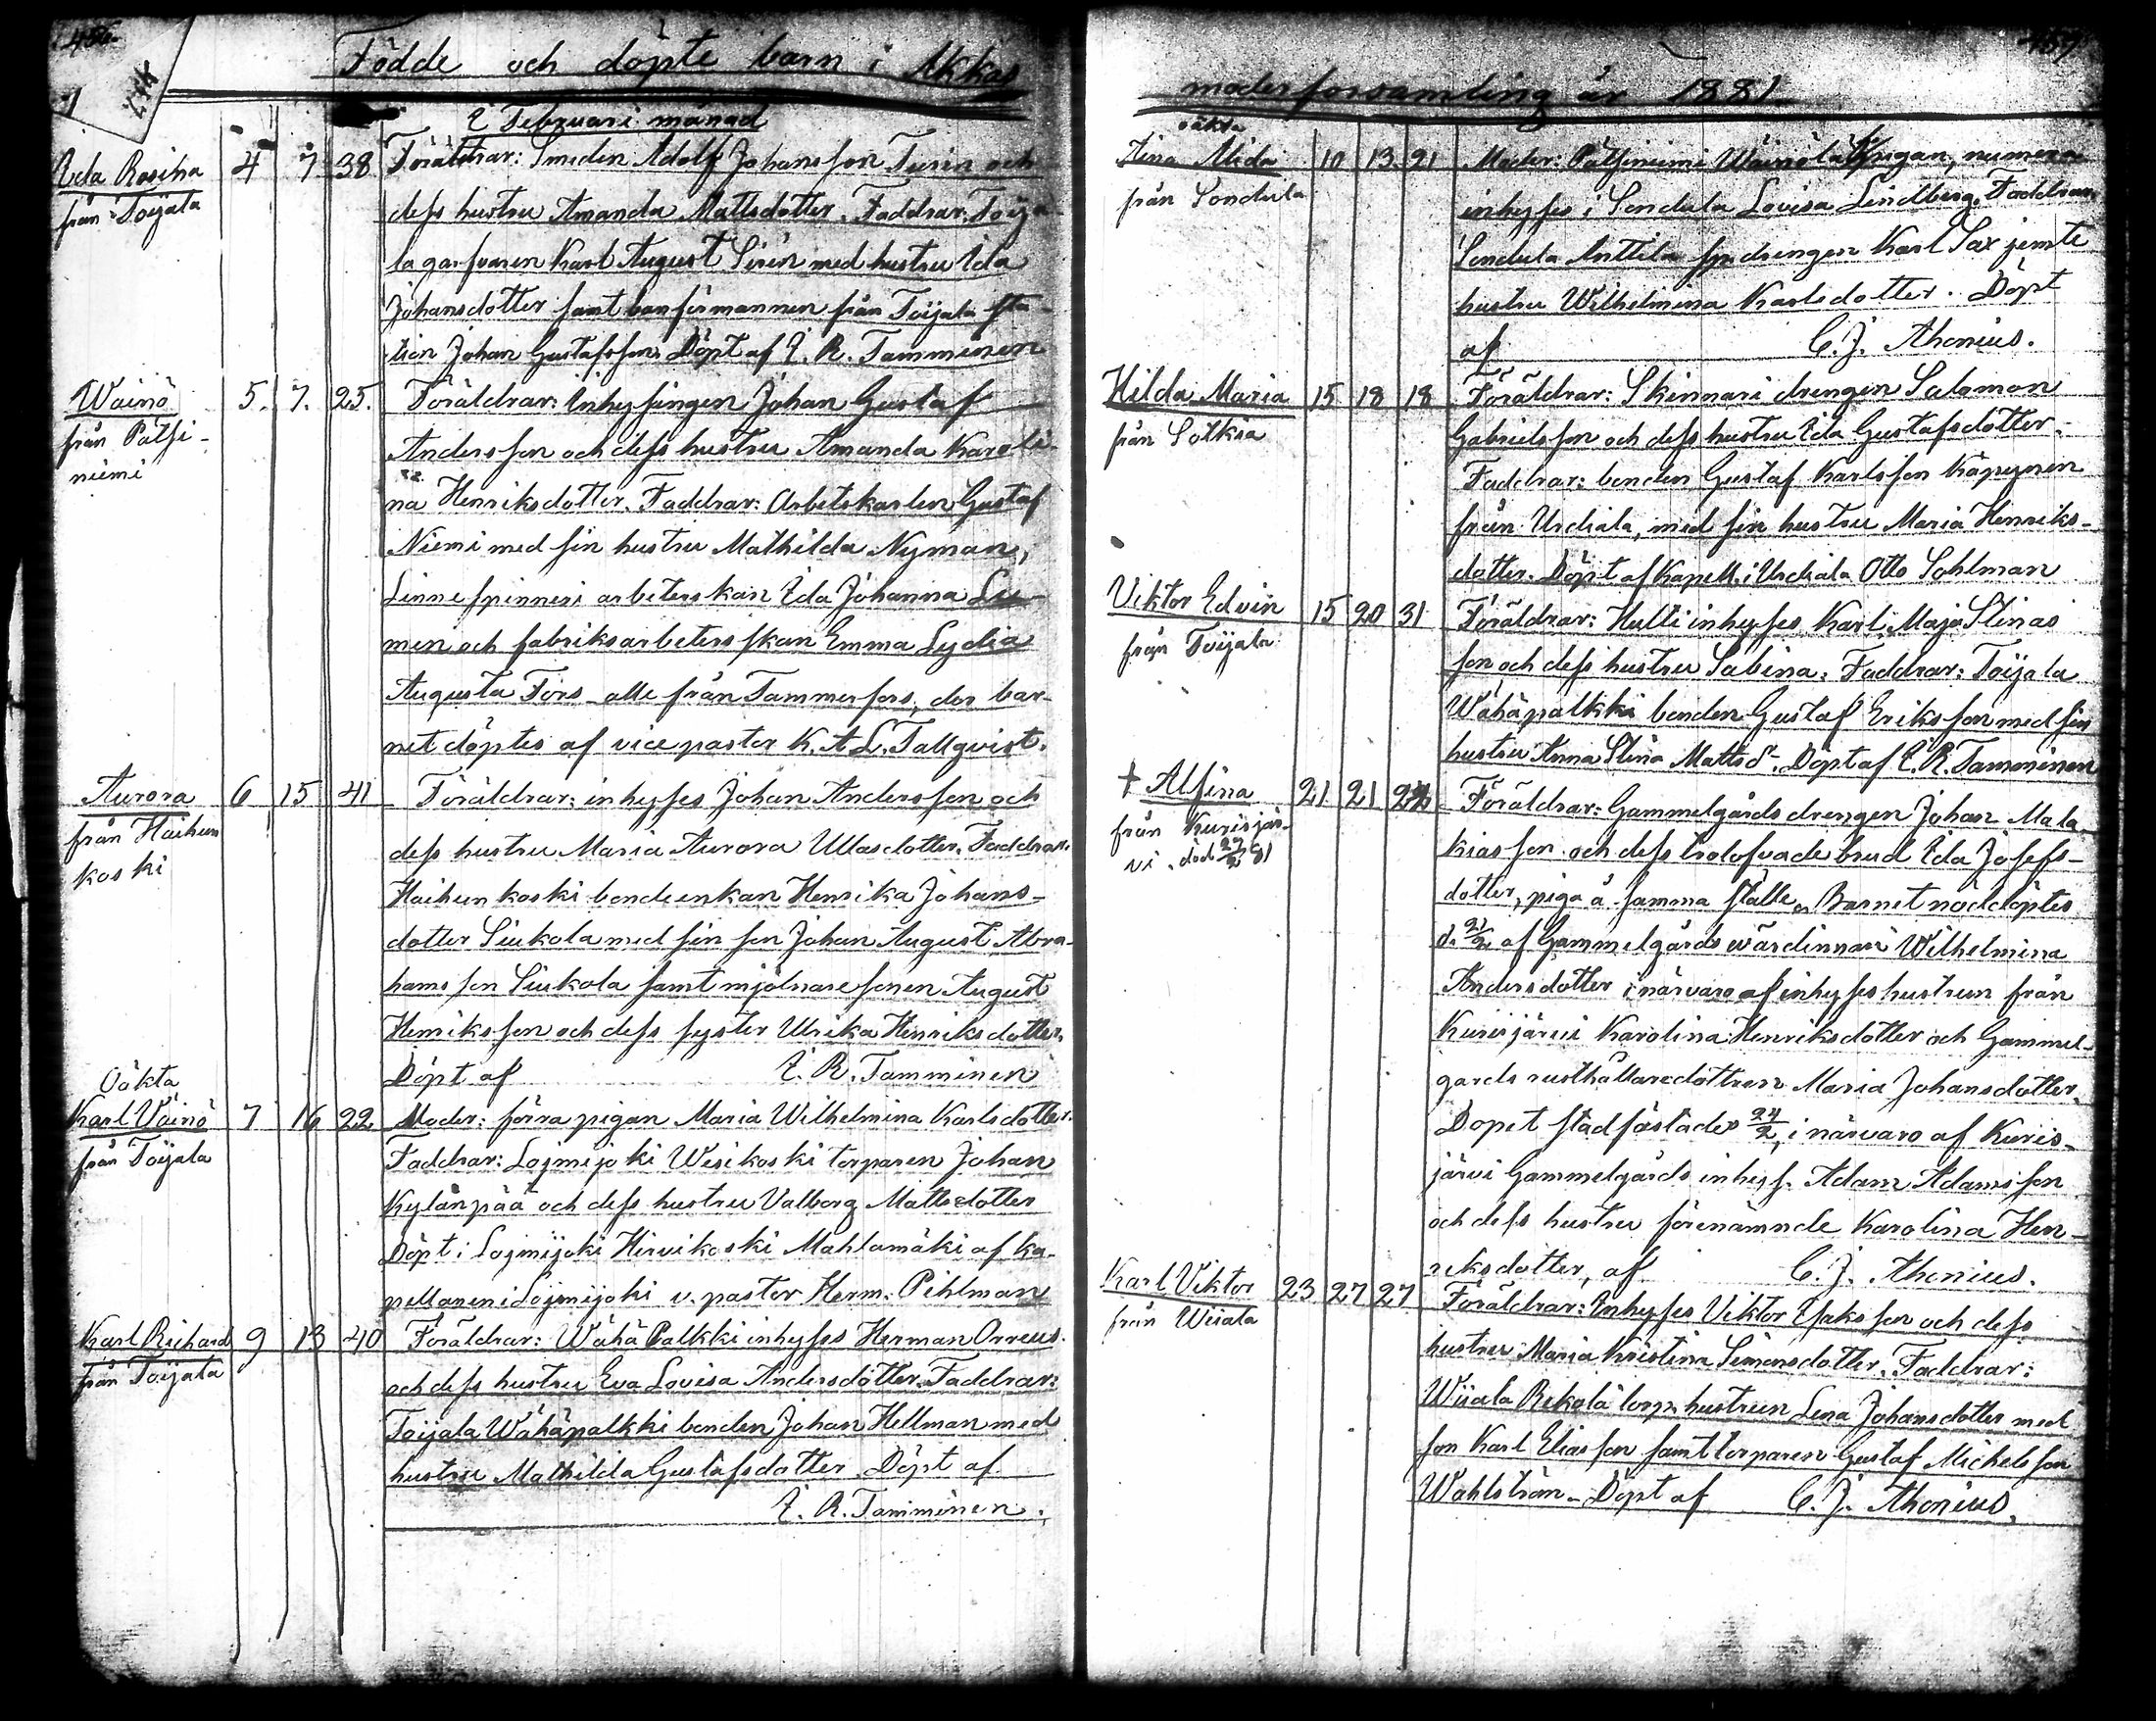 456
Födde och döpte barn i Akkas
I Februari månad
Ida Rosina 4 7 38 Föräldrar: Smeden Adolf Johansson Turin och
från Toijala dess hustru Amanda Mattsdotter. Faddrar: Toija-
la garfvaren Karl August Sirén med hustru Ida
Johansdotter samt banförmannen från Toijala sta-
tion Johan Gustafsson. Döpt af I. R. Tamminen
Wäinö 5. 7. 25. Föräldrar: Inhysingen Johan Gustaf
från Pätsi- Andersson och dess hustru Amanda Karoli-
niemi na Henriksdotter. Faddrar: Arbetskarlen Gustaf
Niemi med sin hustru Mathilda Nyman,
Linnespinneri arbeterskan Ida Johanna
men och fabriksarbeterskan Emma Lydia
Augusta Fors - alle från Tammerfors, der bar-
net döptes af vice pastor K. A. L. Tallqvist.
Aurora 6 15 41 Föräldrar: inhyses Johan Andersson och
från Haihun dess hustru Maria Aurora Ullasdotter. Faddrar:
koski Haihunkoski bondeenkan Henrika Johans-
dotter Siukola med sin son Johan August Abra-
hamsson Siukola samt mjölnaresonen August
Henriksson och dess syster Ulrika Henriksdotter.
Döpt af I. R. Tamminen
Oäkta
Karl Väinö 7 16 22 Moder: förra pigan Maria Wilhelmina Karlsdotter.
från Toijala Faddrar: Lojmijoki Wesikoski torparen Johan
Kylänpää och dess hustru Valborg Mattsdotter
Döpt i Lojmijoki Hirvikoski Mahlamäki af ka-
pellanen i Lojmijoki v. pastor Herm. Pihlman
Karl Richard 9 13 40 Föräldrar: Wähä Palkki inhyses Herman Orreus
från Toijala och dess hustru Eva Lovisa Andersdotter. Faddrar:
Toijala Wähäpalkki bonden Johan Hellman med
hustru Mathilda Gustafsdotter. Döpt af
I. R. Tamminen.
457
moderförsamling år 1881
oäkta
Aina Alida 10 13 21 Moder: Pätsiniemi Wäinölä pigan, numera
från Sondula inhyses i Sondula Lovisa Lindberg. Faddrar:
Sondula Anttila drengen Karl Sax jemte
hustru Wilhelmina Karlsdotter. Döpt
af C. J. Ahonius.
Hilda Maria 15 18 18 Föräldrar: Skinnari drengen Salomon
från Sotkia Gabrielsson och dess hustru Ida Gustafsdotter.
Faddrar: bonden Gustaf Karlsson Käpynen
från Urdiala, med sin hustru Maria Henriks-
dotter. Döpt af Kapell. i Urdiala Otto Sohlman
Viktor Edvin 15 20 31 Föräldrar: Hulli inhyses Karl MajaStinas
från Toijala son och dess hustru Sabina. Faddrar: Toijala
Wähäpalkki bonden Gustaf Eriksson med sin
hustru Anna Stina Mattsd:r. Döpt af I. R. Tamminen
† Alfina 21 21 24 Föräldrar: Gammelgårds drengen Johan Mala-
från Kurisjär- kiasson och dess trolofvade brud Ida Josefs-
vi. död 27/2 81 dotter, piga å samma ställe. Barnet nöddöptes
d. 21/2 af Gammelgårds värdinnan Wilhelmina
Andersdotter i närvaro af inhyseshustrun från
Kurisjärvi Karolina Henriksdotter och Gammel-
gårds rusthållaredottren Maria Johansdotter.
Dopet stadfästades 24/2, i närvaro af Kuris-
järvi Gammelgårds inhys. Adam Adamsson
och dess hustru förenämnde Karolina Hen-
riksdotter, af C. J. Ahonius.
Karl Viktor 23 27 27 Föräldrar: Inhyses Viktor Isaksson och dess
från Wiiala hustru Maria Kristina Simonsdotter. Faddrar:
Wiiala Rekola torp. hustrun Lena Johansdotter med
son Karl Eliasson samt torparen Gustaf Michelsson
Wahlström. Döpt af C. J. Ahonius.